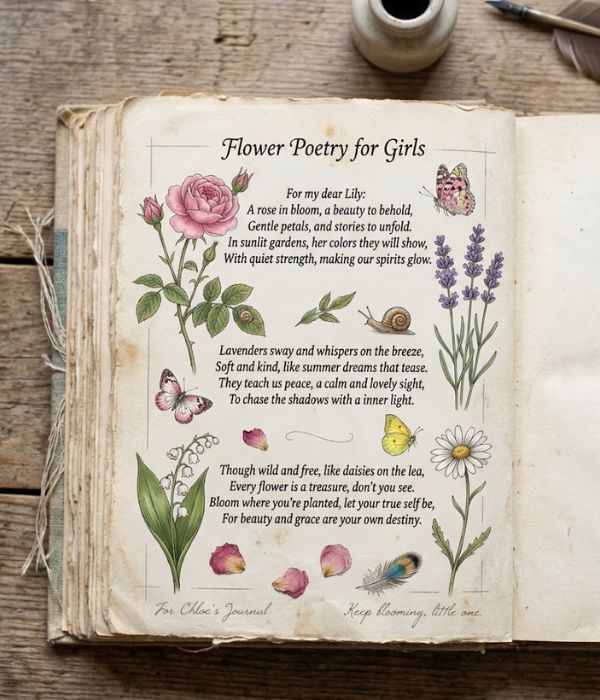 Flower Poetry for Girls
For my dear Lily:
A rose in bloom, a beauty to behold,
Gentle petals, and stories to unfold.
In sunlit gardens, her colors they will show,
With quiet strength, making our spirits glow.
Lavenders sway and whispers on the breeze,
Soft and kind, like summer dreams that tease.
They teach us peace, a calm and lovely sight,
To chase the shadows with a inner light.
Though wild and free, like daisies on the lea,
Every flower is a treasure, don't you see.
Bloom where you're planted, let your true self be,
For beauty and grace are your own destiny.
For Chloe's Journal
Keep blooming, little one.